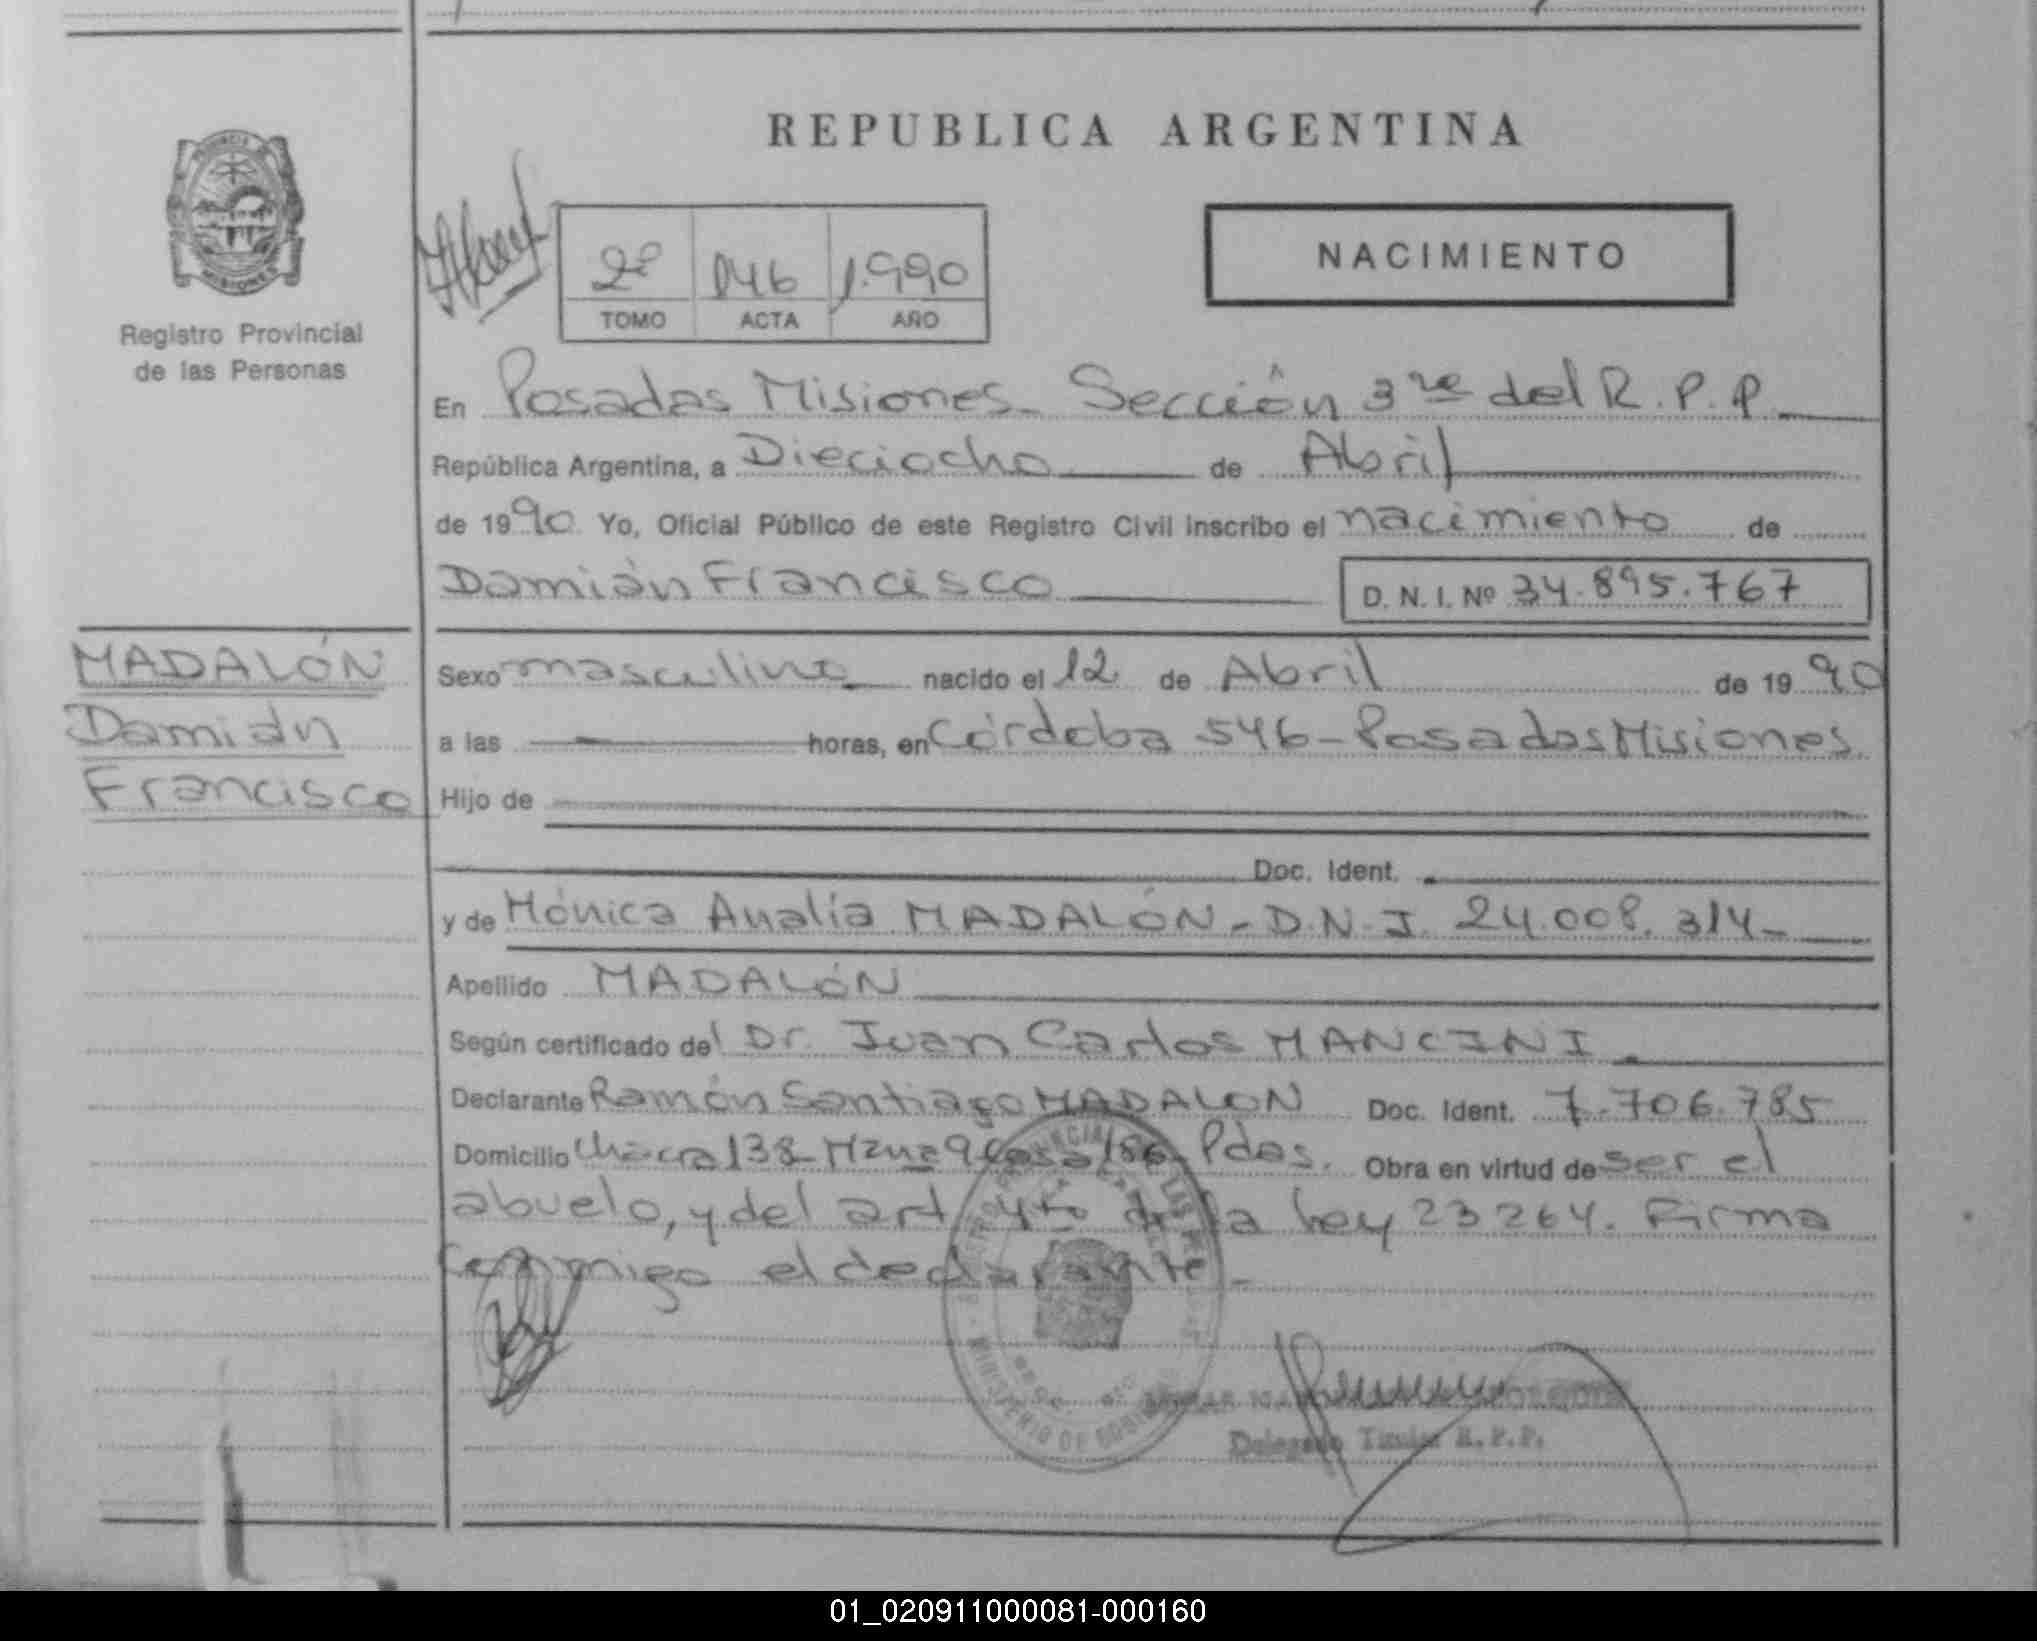 REPUBLICA ARGENTINA
PROVINCIA
MISIONES
Registro Provincial
de las Personas
2º 146 1.990
TOMO ACTA AÑO
NACIMIENTO
En Posadas Misiones. Sección 3ra del R.P.P.
República Argentina, a Dieciocho de Abril
de 1990. Yo, Oficial Público de este Registro Civil inscribo el nacimiento de
Damián Francisco D. N. I. Nº 34.895.767
MADALÓN
Damián
Francisco
Sexo masculino nacido el 12 de Abril de 1990
a las — horas, en Córdoba 546 - Posadas Misiones.
Hijo de
Doc. Ident.
y de Mónica Analía MADALÓN - D.N.I. 24.008.314-
Apellido MADALÓN
Según certificado del Dr. Juan Carlos MANCINI.
Declarante Ramón Santiago MADALON Doc. Ident. 7.706.785
Domicilio Chacra 138 - Mzna 9 Casa 186 - Pdas. Obra en virtud de ser el
abuelo, y del art. 4to de la Ley 23264. Firma
conmigo el declarante -
MINISTERIO DE GOBIERNO
Delegado Titular R.P.P.
01_020911000081-000160